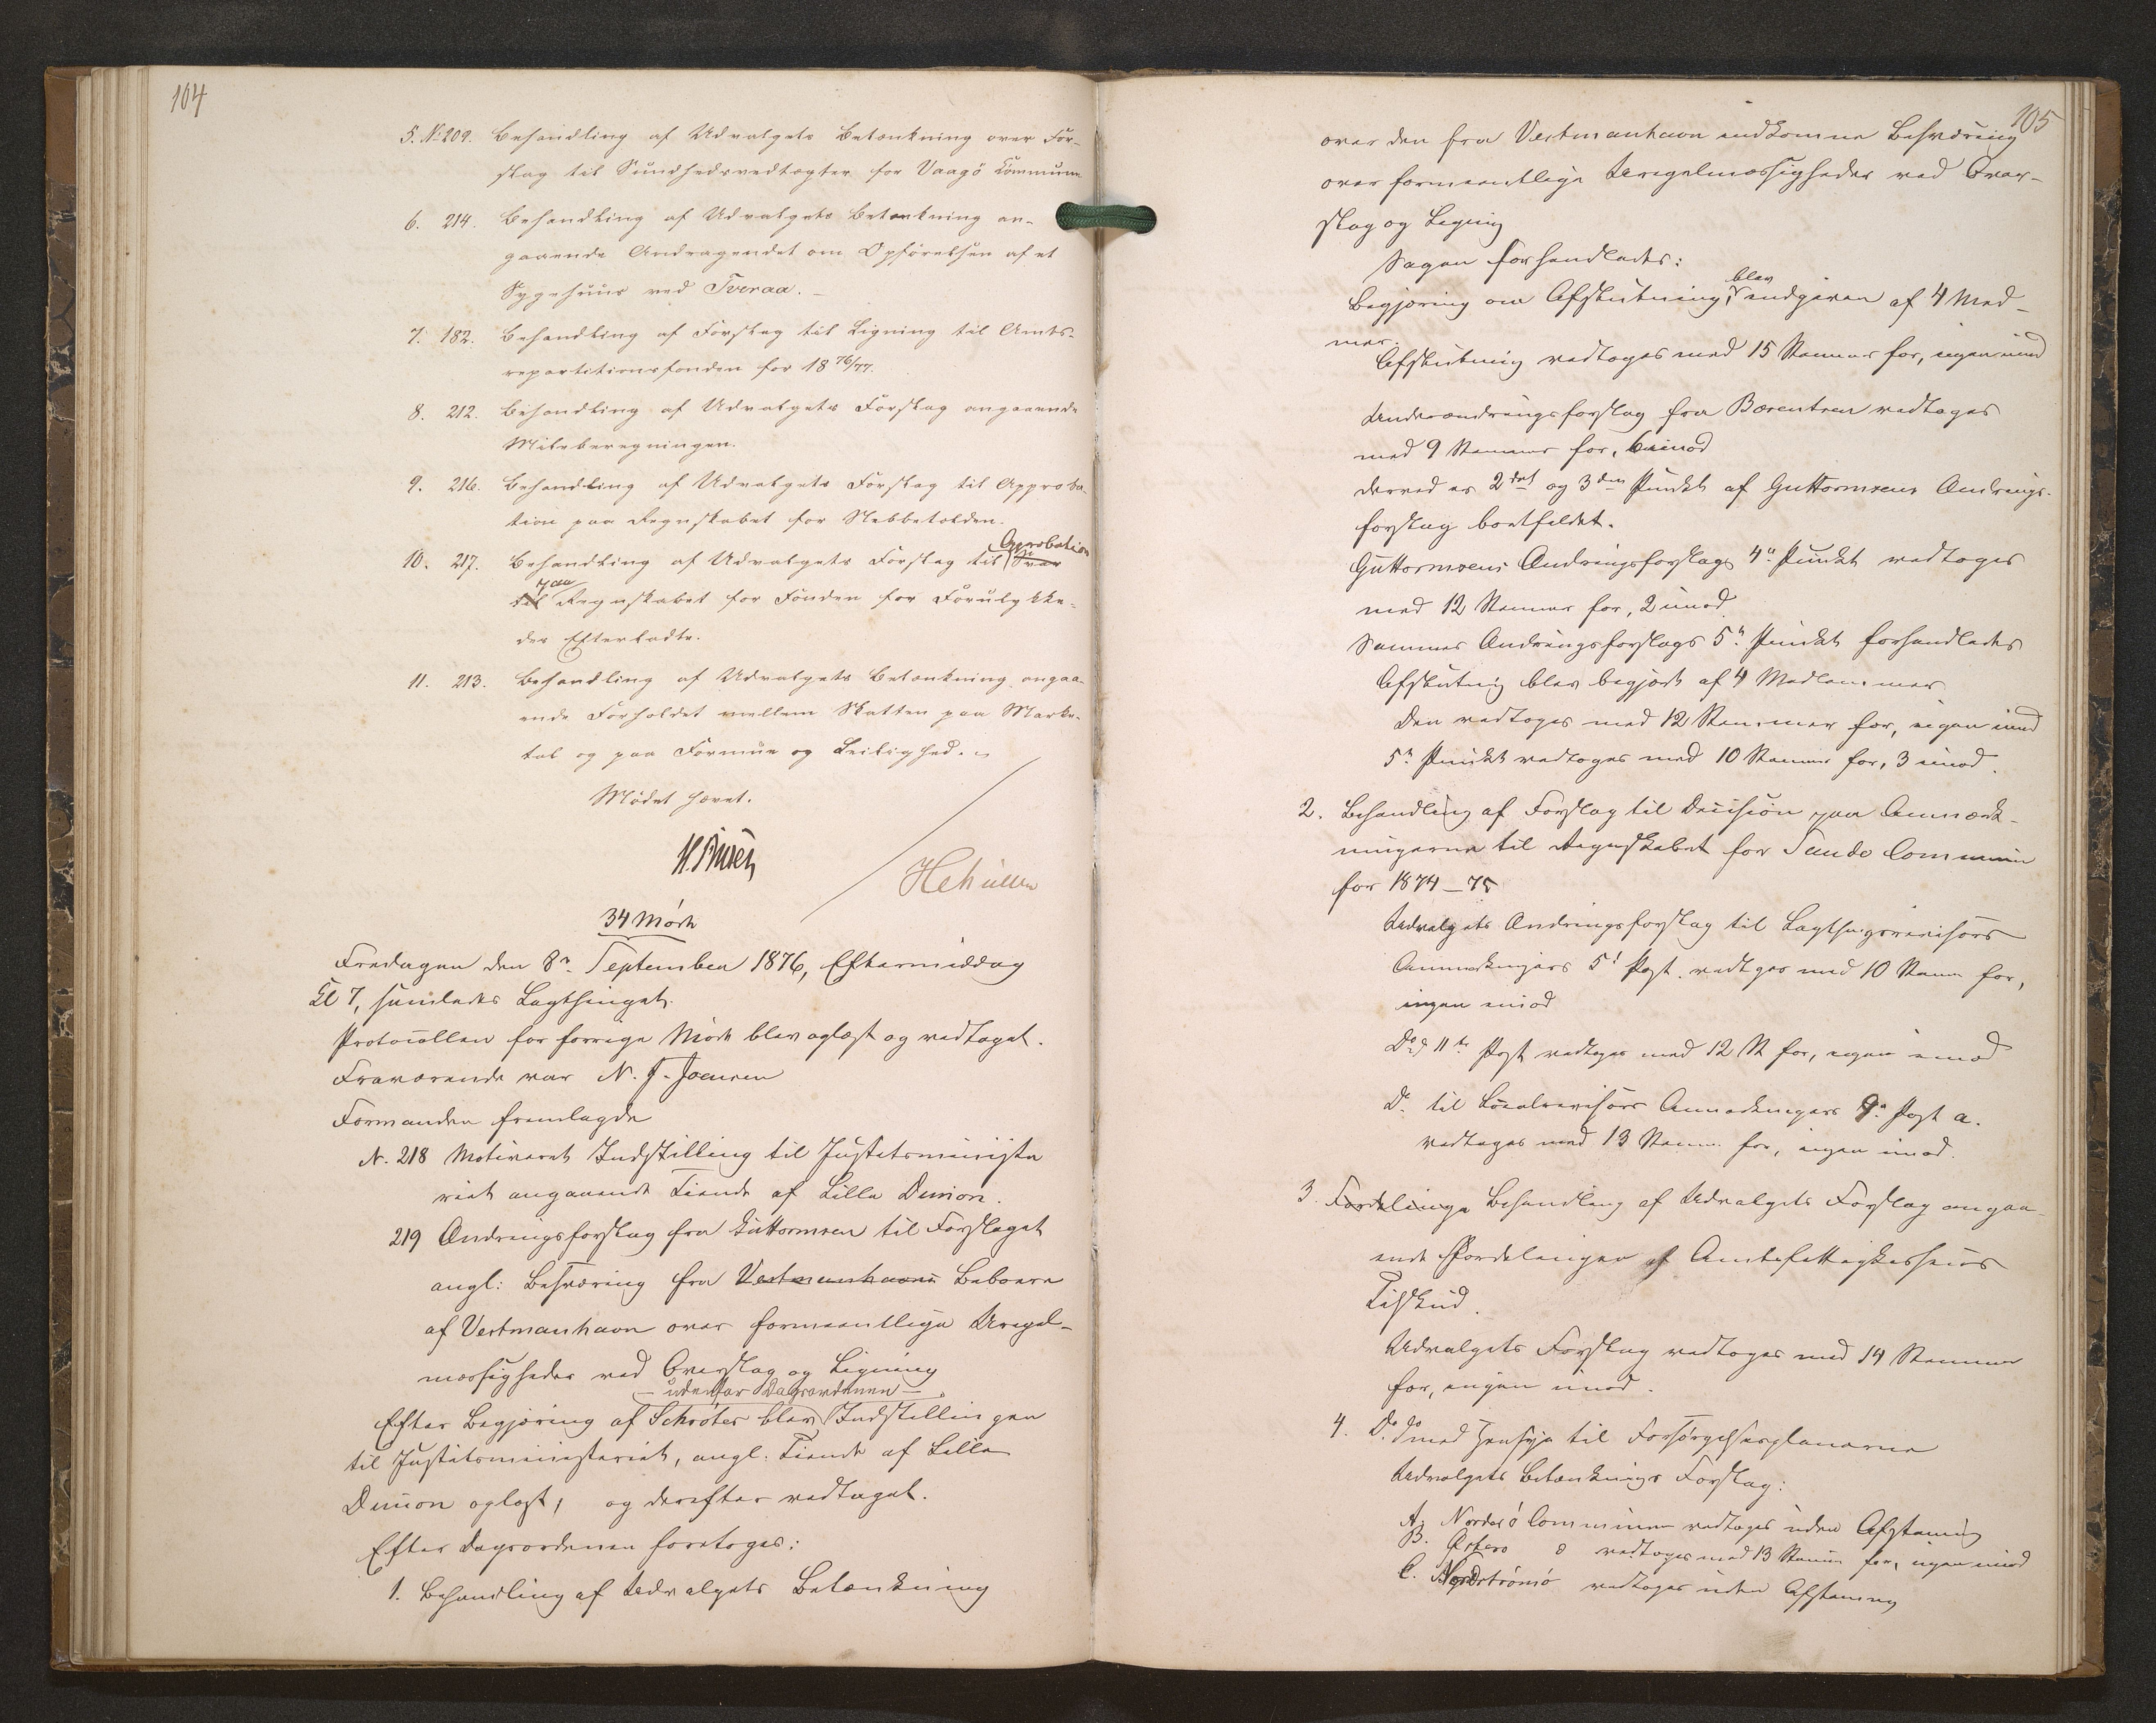 104
5. No 209. Behandling af Udvalgets Betænkning over For-
slag til Sundhedsvedtægter for Vaagø Kommune
6. 214. Behandling af Udvalgets Betænkning an-
gaaende Andragendet om Opførelsen af et
Sygehuus ved Tveraa.
7. 182. Behandling af Forslag til Ligning til Amts-
repartitionsfonden for 18 76/77.
8. 212. Behandling af Udvalgets Forslag angaaende
Mileberegningen.
9. 216. Behandling af Udvalgets Forslag til Approba-
tion paa Regnskabet for Nebbetolden.
Aprobation
10. 217. Behandling af Udvalgets Forslag til Svar
paa
til Regnskabet for Fonden for Forulykke-
des Efterladte.
11. 213. Behandling af Udvalgets Betænkning angaa-
ende Forholdet mellem Skatten paa Marke-
tal og paa Formue og Leilighed.
Mødet hævet.
34 Møde
Fredagen den 8n September 1876, Eftermiddag
Kl 7, samledes Lagthinget.
Protocollen for forrige Møde blev oplæst og vedtaget.
Fraværende var N. J. Joensen
Formanden fremlagde
N. 218 Motiveret Indstilling til Justitsministe
riet angaaende Tiende af Lille Dimon.
219 Ændringsforslag fra Guttormsen til Forslaget
angl: Besværing fra Vestmanhavn Beboere
af Vestmanhavn over formeentlige Uregel-
mæssigheder ved Overslag og Ligning
– udenfor Dagsordenen –
Efter Begjæring af Schrøter blev Indstillingen
til Justitsministeriet, angl. Tiende af Lille
Dimon oplæst, og derefter vedtaget.
Efter Dagsordenen foretoges:
1. Behandling af Udvalgets Betænkning
105
over den fra Vestmanhavn indkomne Besværing
over formeentlige Uregelmæssigheder ved Over-
slag og Ligning
Sagen forhandledes:
blev
Begjæring om Afslutning, indgiven af 4 Med-
mer.
Afslutning vedtoges med 15 Stemmer for, ingen imod
Underændringsforslag fra Bærentsen vedtoges
med 9 Stemmer for, 6 imod
derved er 2det og 3die Punkt af Guttormsens Ændrings-
forslag bortfaldet.
Guttormsens Ændringsforslags 4e Punkt vedtoges
med 12 Stemmer for, 2 imod
Sammes Ændringsforslags 5te Punkt forhandledes
Afslutning blev begjært af 4 Medlemmer
Den vedtoges med 12 Stemmer for, ingen imod
5te Punkt vedtoges med 10 Stemmer for, 3 imod.
2. Behandling af Forslag til Decision paa Anmærk-
ningerne til Regnskabet for Sandø Commune
for 1874–75
Udvalgets Ændringsforslag til Lagthingsrevisors
Anmærkningers 5t Post vedtoges med 10 Stemm for,
ingen imod
Do do 11te Post vedtoges med 12 St for, ingen imod
Do til Localrevisors Anmærkningers 9e Post a.
vedtoges med 13 Stemm. for, ingen imod.
3. Fordelinge Behandling af Udvalgets Forslag angaa-
ende Fordelingen af Amtsfattigkassens
Tilskud.
Udvalgets Forslag vedtoges med 14 Stemmer
for, ingen imod.
4. Do do med Hensyn til Forsørgelsesplanerne
Udvalgets Betænknings Forslag:
A. Norderø Communer vedtoges uden Afstemning
B. Østerø d vedtoges med 13 Stemm for, ingen imod
C. Nordstrømø vedtoges uden Afstemning